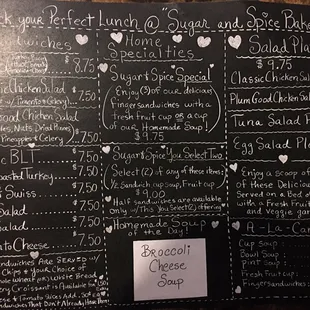 ck your Perfect Lunch @ "Sugar and Spice Bake
dwiches
$8.75
Chicken Salad
w/ Tomato & Celery)
$7.50
d Chicken Salad
Nuts, Dried
neapples & Celery
$7.50
BLT
7.50
oasted Turkey
7.50
& Swiss
7.50
Salad
7.50
Salad
7.50
Tomato Cheese
7.50
Sandwiches Are Served w/
Chips & Your Choice of
Wheat or White Bread
Croissant is Available for
Home
Specialties
Sugar & Spice Special
Enjoy (3) of our delicious
Fingersandwiches with a
fresh Fruit cup or a cup
of our Homemade Soup!
$9.75
Sugar & Spice You Select Two
Select (2) of any of these items:
1/2 Sandwich, cup Soup, Fruit cup
$9.00
Half sandwiches are available
Only w/ This You Select (2) offering
Homemade Soup
of the Day!
Broccoli
Cheese
Soup
Salad Pla
$9.75
Classic Chicken Sal
Plum Good Chicken Sal
Tuna Salad P
Egg Salad Pl
Enjoy a scoop of
of These Delicious
Served on a Bed o
with a Fresh Fruit
and Veggie gar
A-La-Car
Cup Soup
Bowl Soup
Pint Soup
Fresh Fruit cup
Fingersandwiches